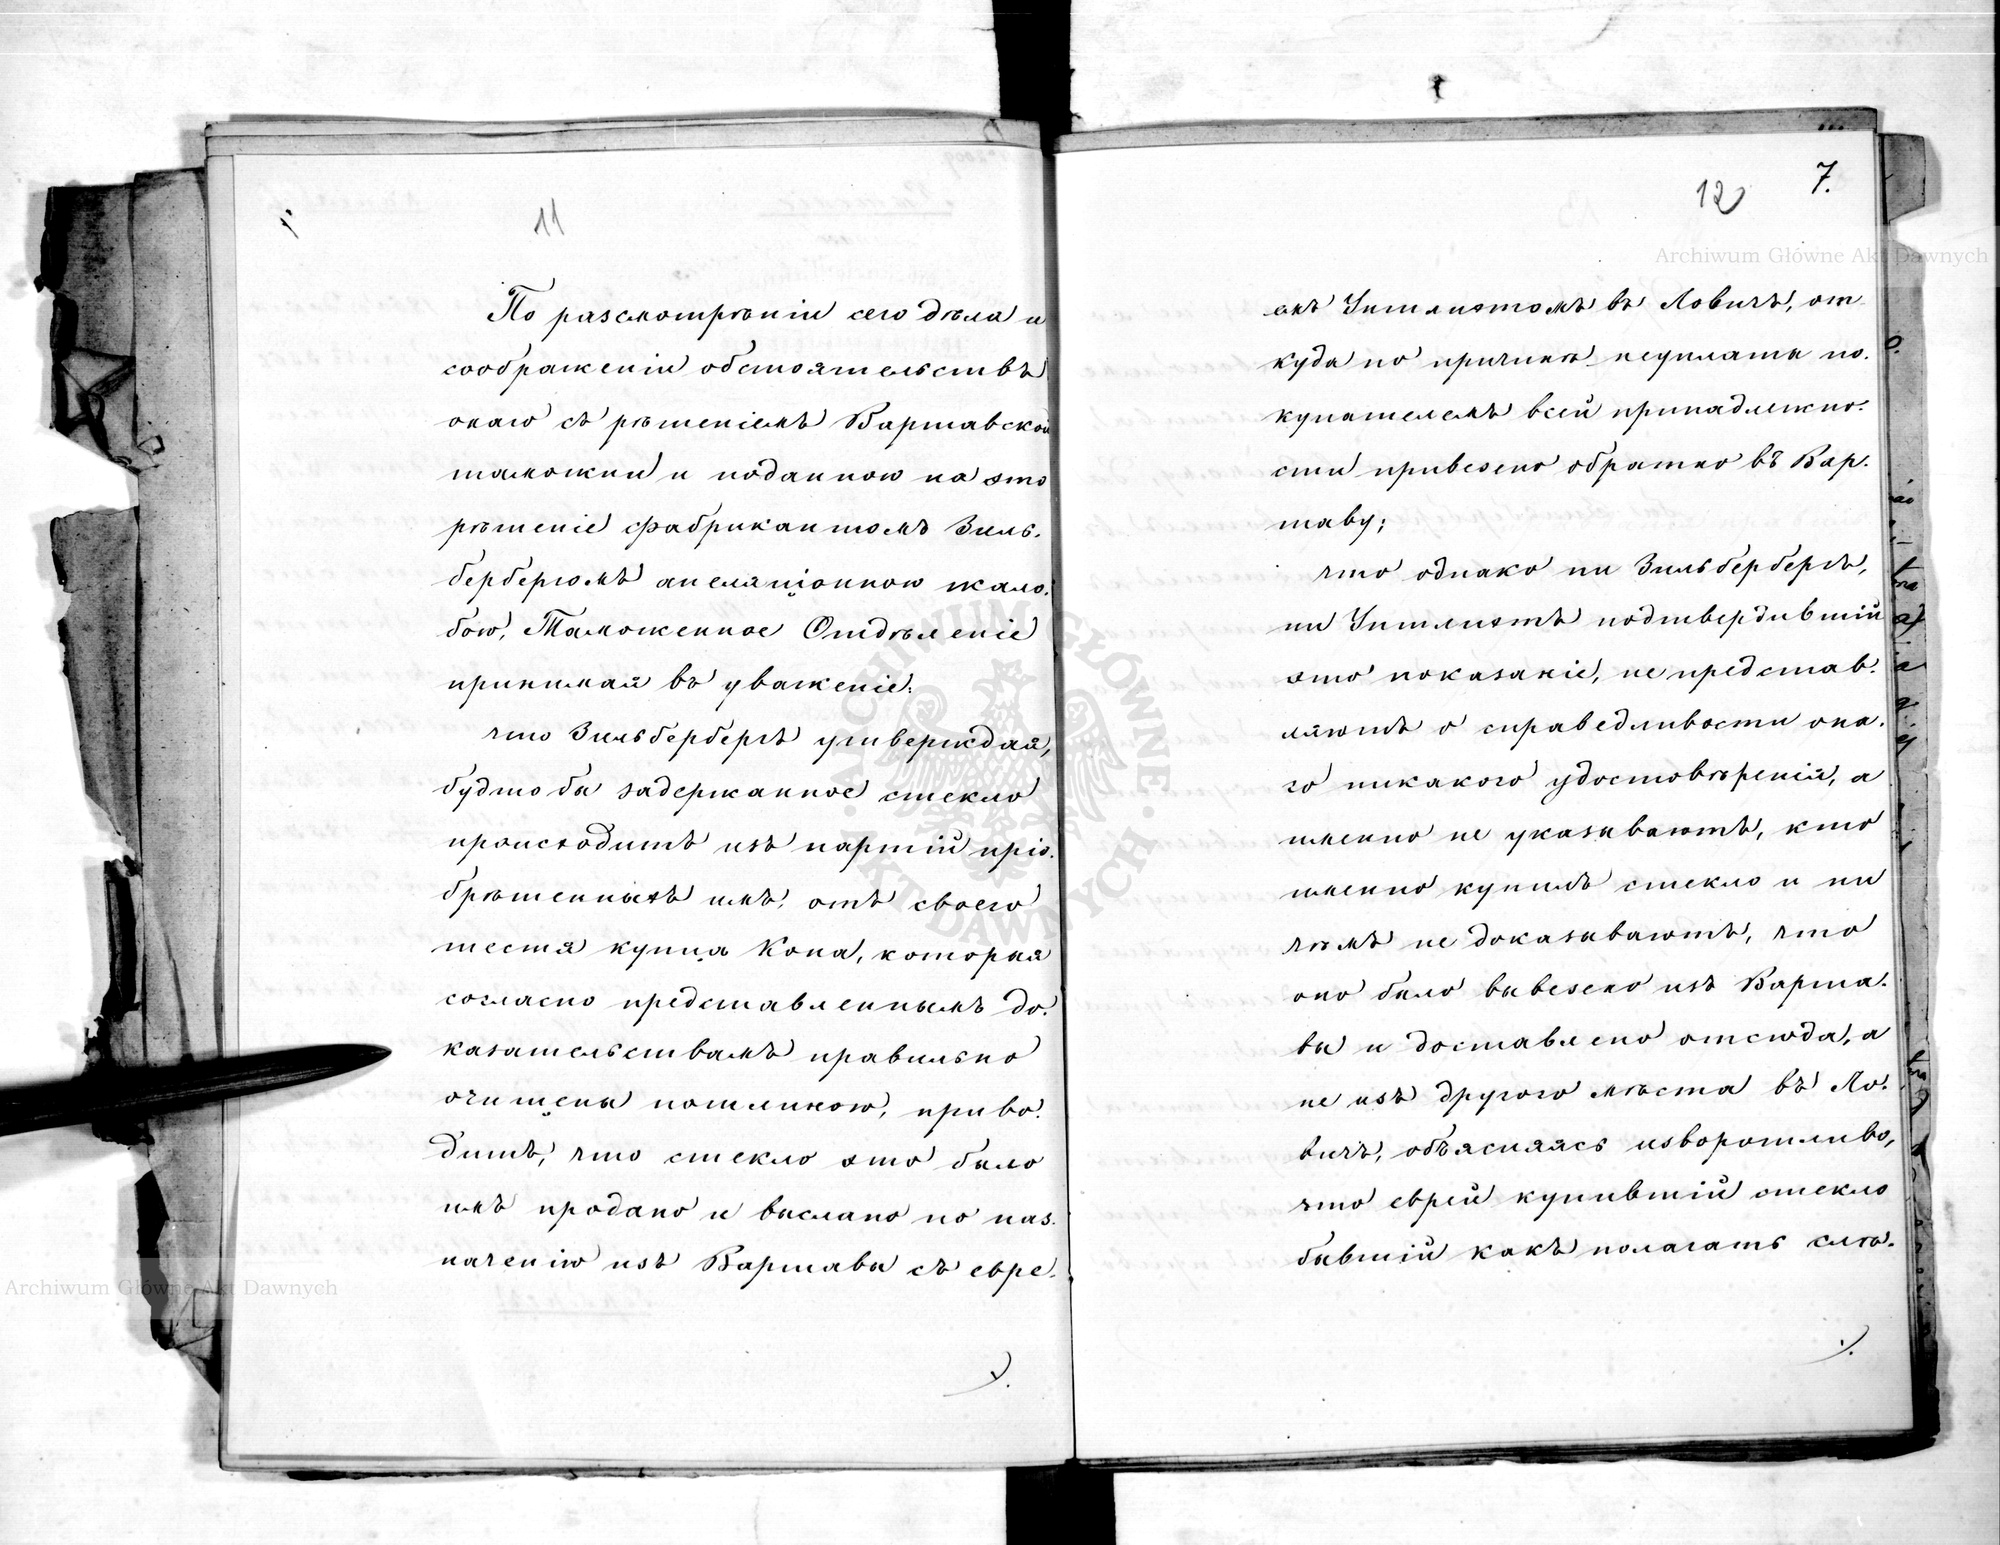 11
По разсмотрѣніи сего дѣла и
соображеніи обстоятельствъ
онаго съ рѣшеніемъ Варшавской
таможни и поданною на это
рѣшеніе фабрикантомъ Зиль-
бербергомъ апеляціонною жало-
бою, Таможенное Отдѣленіе
принимая въ уваженіе:
что Зильбербергъ утверждая,
будто бы задержанное стекло
происходитъ изъ партій прі-
обрѣтенныхъ имъ, отъ своего
тестя купца Кона, которыя
согласно представленнымъ до-
казательствамъ правильно
очищены пошлиною, приво-
дитъ, что стекло это было
имъ продано и выслано по наз-
наченію изъ Варшавы съ евре-
12
7.
емъ въ Ловичъ, от-
куда по причинѣ неуплаты по-
купателемъ всей принадлежно-
сти привезено обратно въ Вар-
шаву;
что однако ни Зильбербергъ,
ни подтвердившій
это показаніе, не представ-
ляютъ о справедливости она-
го никакого удостовѣренія, а
именно не указываютъ, кто
именно купилъ стекло и ни
чѣмъ не доказываютъ, что
оно было вывезено изъ Варша-
вы и доставлено отсюда, а
не изъ другого мѣста въ Ло-
вичъ, объясняясь изворотливо,
что еврей купившій стекло
бывшій какъ полагать слѣ-
Archiwum Główne Akt Dawnych
Archiwum Główne Akt Dawnych
ARCHIWUM GŁÓWNE
AKT DAWNYCH